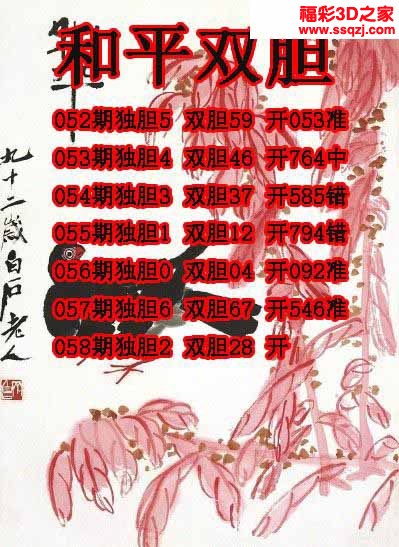 福彩3D之家
www.ssqzj.com
和平
和平双胆
052期独胆5 双胆59 开053准
053期独胆4 双胆46 开764中
054期独胆3 双胆37 开585错
055期独胆1 双胆12 开794错
056期独胆0 双胆04 开092准
057期独胆6 双胆67 开546准
058期独胆2 双胆28 开
九十二岁白石老人